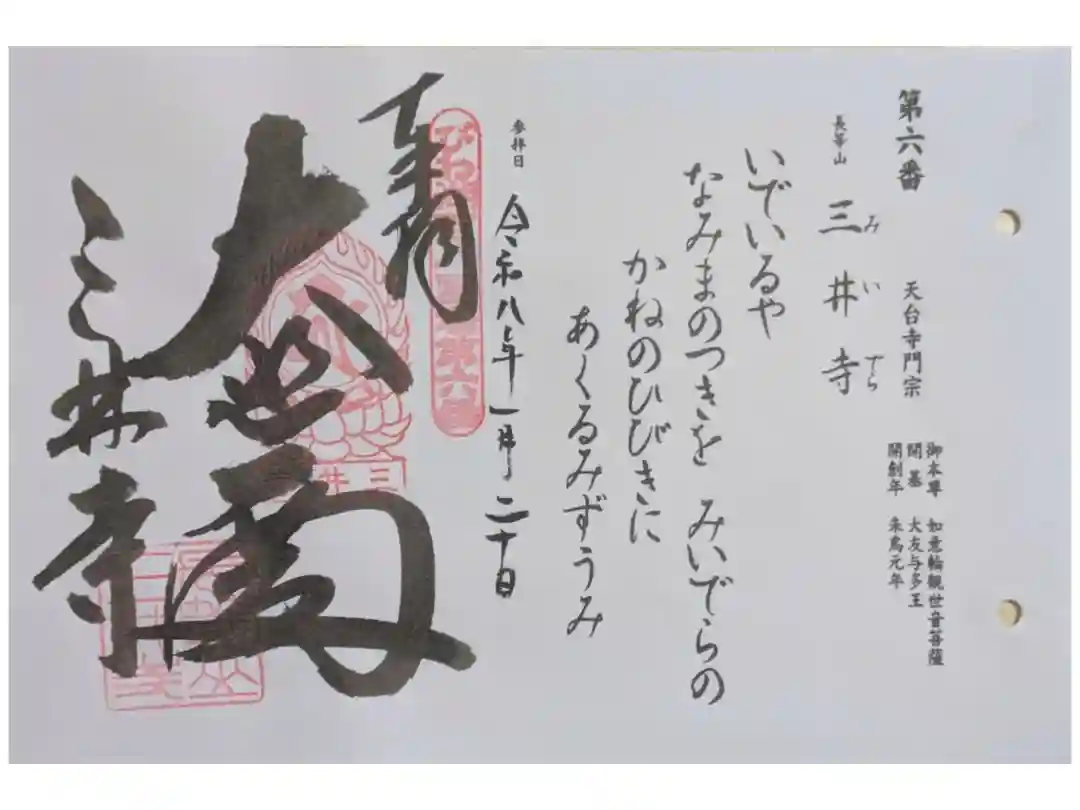 第六番
天台寺門宗
御本尊 如意輪観世音菩薩
開基 大友与多王
開創年 朱鳥元年
長等山 三井寺
み い でら
いでいるや
なみまのつきを みいでらの
かねのひびきに
あくるみずうみ
参拝日 令和八年一月二十日
奉拝
大悲閣
三井寺